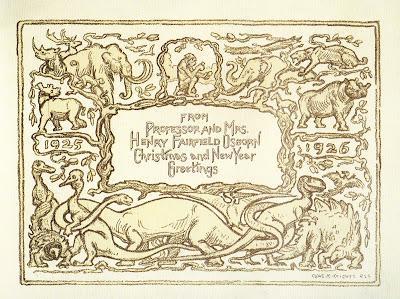 FROM
PROFESSOR AND MRS.
HENRY FAIRFIELD OSBORN
Christmas and New Year
Greetings
1925
1926